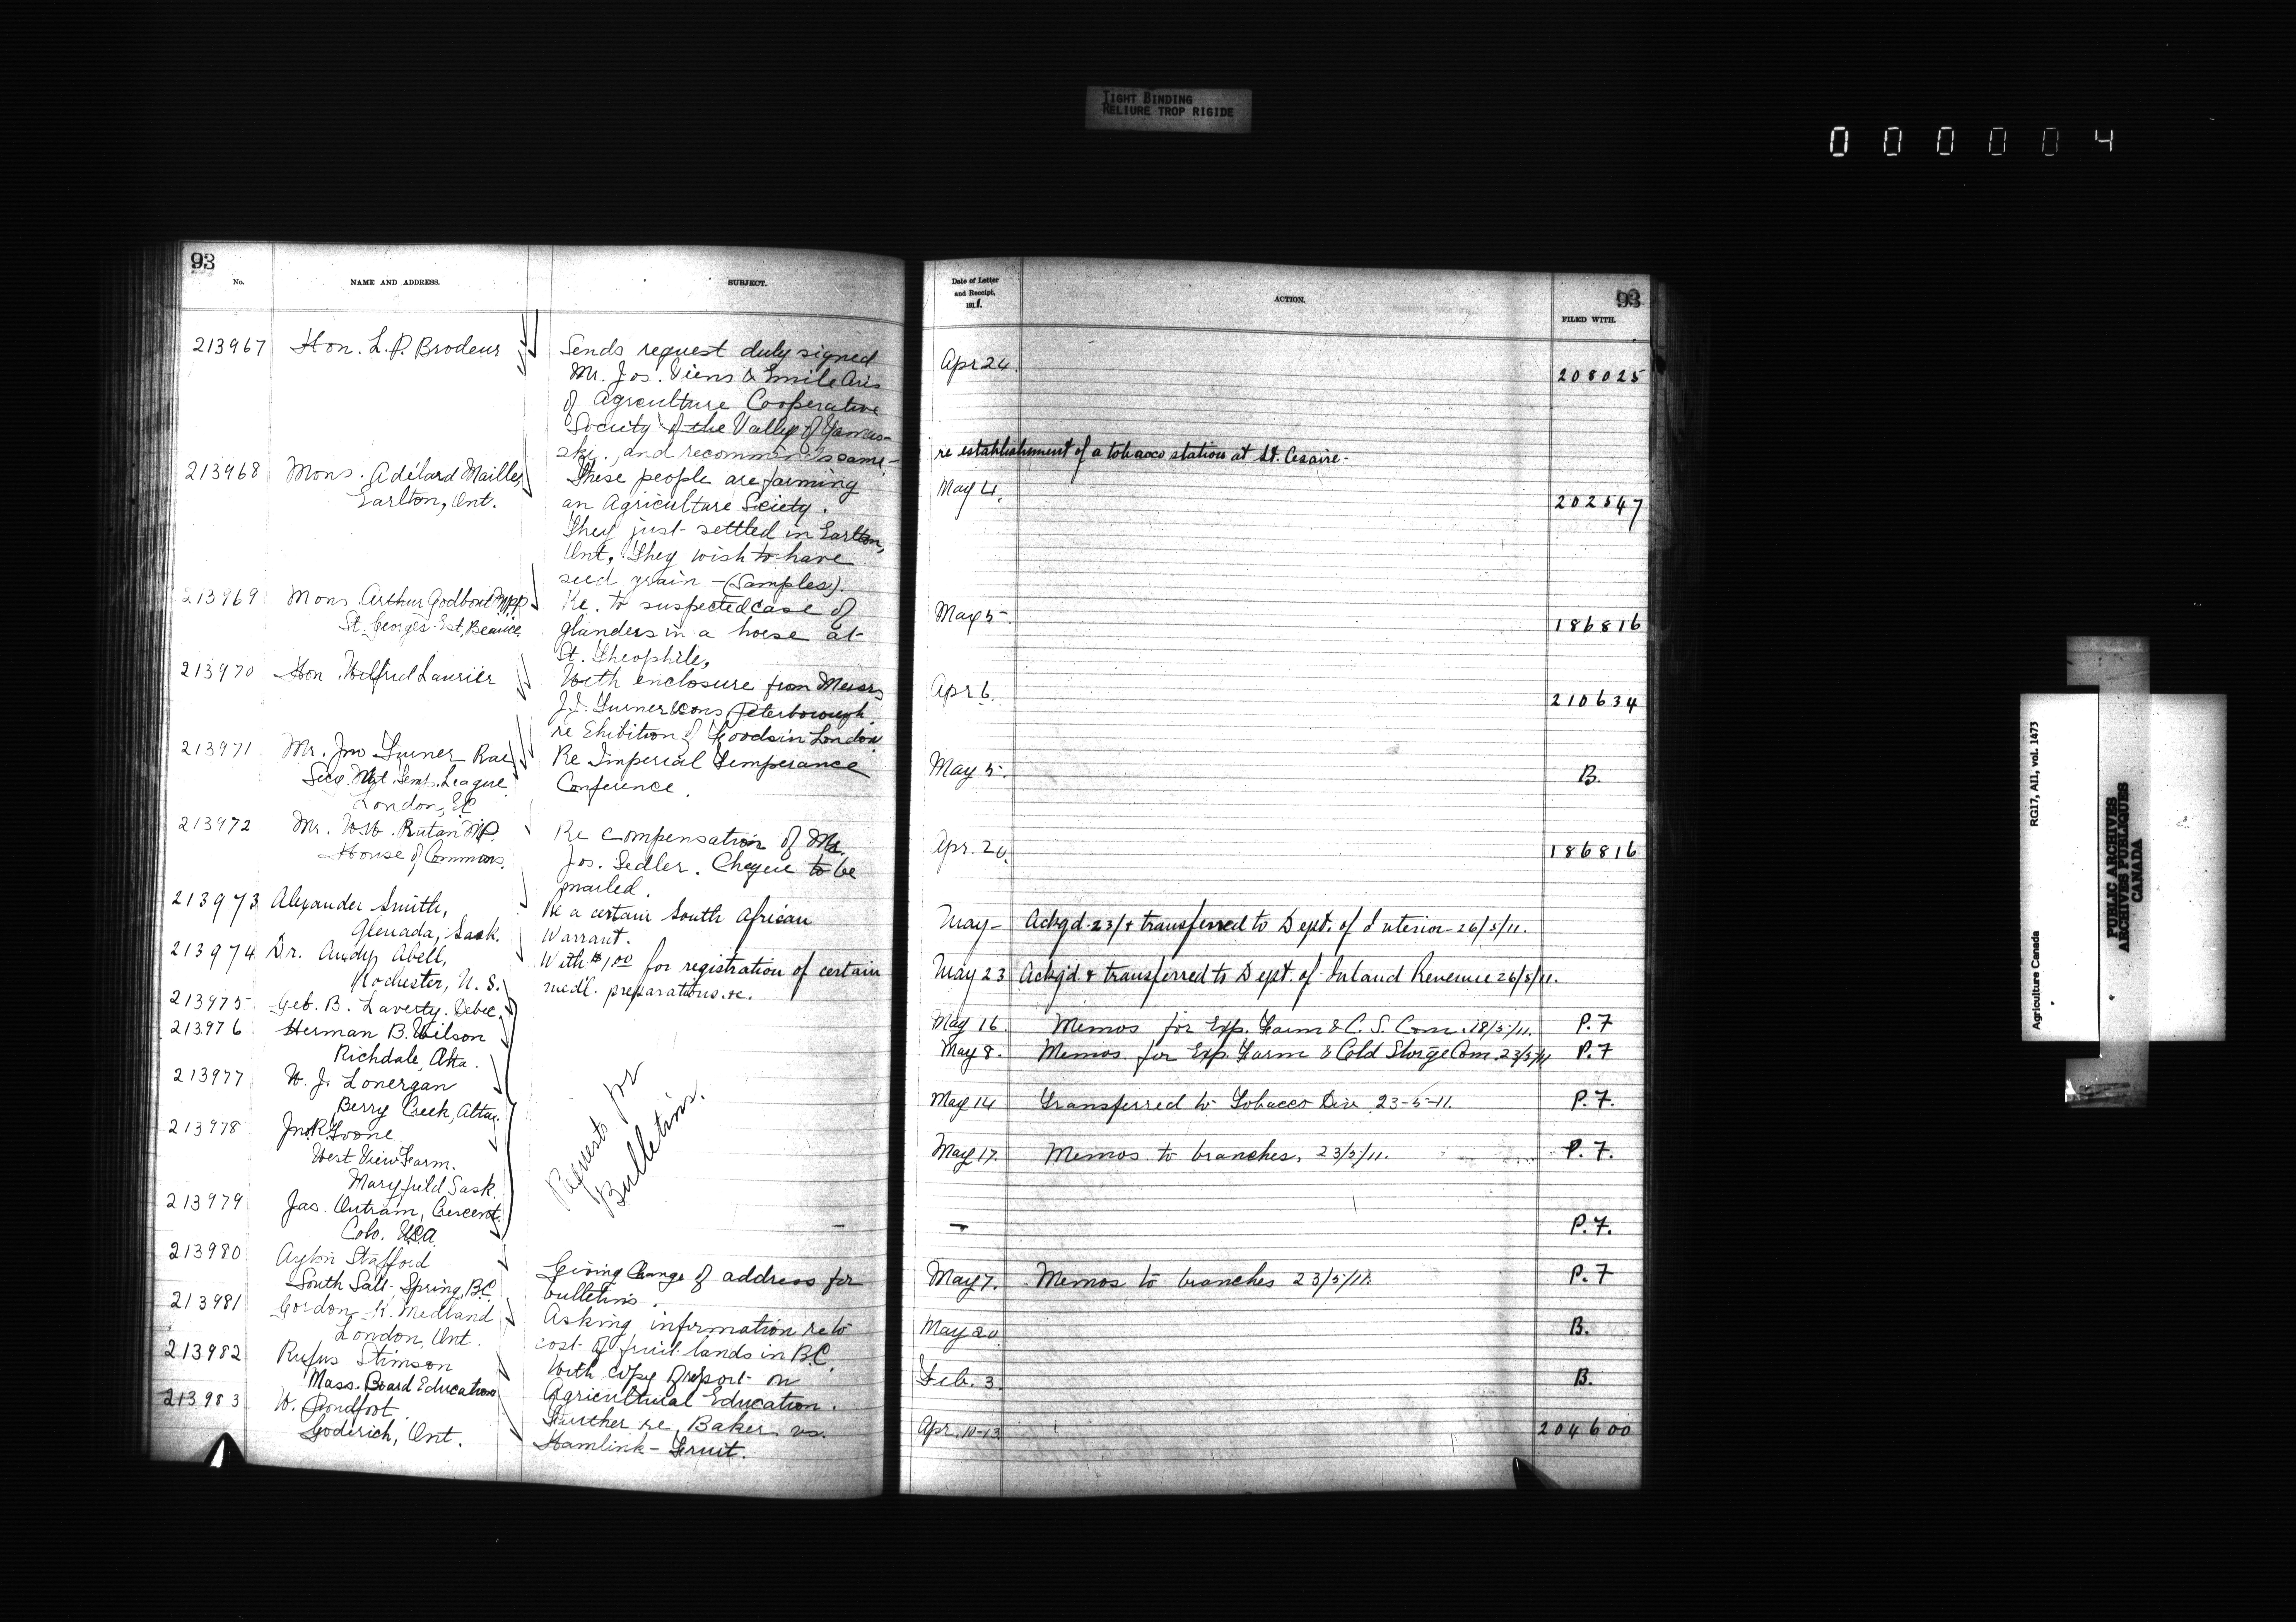 TIGHT BINDING
RELIURE TROP RIGIDE
000004
93
No.
NAME AND ADDRESS.
SUBJECT.
213967 Hon. L. P. Brodeur
Sends request duly signed
Mr. Jos. Viens & Emile
of Agriculture Cooperative
Society of the Valley of Yamas-
ka, and recommends same-
213968 Mons. Adélard Mailles,
Earlton, Ont.
These people are farming
an Agriculture Sciety.
They just settled in Earlton,
Ont. They wish to have
seed grain - (Samples).
213969 Mons Arthur Godbout Mpp
St. Georges Est, Beauce
Re. to suspected case of
glanders in a horse at
St. Theophile,
213970 Hon. Wilfrid Laurier
With enclosure from Messrs
J.J. Turner & Sons Peterborough
re Ehibition of Goods in London
213971 Mr. Jno Turner Rae
Secy. Nat. Temp. League
London, EC
Re Imperial Temperance
Conference.
213972 Mr. W.W. Rutan MP.
House of Commons.
Re compensation of Mr.
Jos. Sedler. Cheque to be
mailed.
213973 Alexander Smith,
Glenada, Sask.
Re a certain South African
Warrant.
213974 Dr. Andy Abell,
Rochester, N. S.
With $1.00 for registration of certain
medl. preparations. &c.
213975 Geo. B. Laverty. Debec,
213976 Herman B. Wilson
Richdale, Alta.
213977 W. J. Lonergan
Berry Creek, Alta.
213978 Jno R.
West View Farm.
Maryfield Sask.
213979 Jas. Outram, Crescent
Colo. USA
Requests for
Bulletins.
213980 Stafford
South Salt Spring, B.C.
Giving Change of address for
bulletins.
213981 Gordon K. Medland
London, Ont.
Asking information re to
cost of fruit lands in B.C.
213982 Rufus Stimson
Mass. Board Education
With copy of report on
Agricultural Education.
213983 W. Proudfoot
Goderich, Ont.
Further re. Baker vs.
Hamlink - Fruit.
Date of Letter
and Receipt,
1911.
ACTION.
93
FILED WITH.
Apr 24. 208025
re establishment of a tobacco station at St. Cesaire-
May 4. 202547
May 5. 186816
Apr 6. 210634
May 5. B.
Apr. 20. 186816
May - Ackgd. 23/ & transferred to Dept. of Interior 26/5/11.
May 23 Ackgd & transferred to Dept. of Inland Revenue 26/5/11.
May 16. Memos for Exp. Farm & C. S. Com. 18/5/11. P.7
May 8. Memos for Exp. Farm & Cold Storge Com. 23/5/11 P.7
May 14 Transferred to Tobacco Div 23-5-11. P.7.
May 17. Memos to branches, 23/5/11. P.7.
- P.7.
May 7. Memos to branches 23/5/11. P.7
May 20. B.
Feb. 3. B.
Apr. 10-13. 204600
Agriculture Canada
RG17, AII, vol. 1473
PUBLIC ARCHIVES
ARCHIVES PUBLIQUES
CANADA